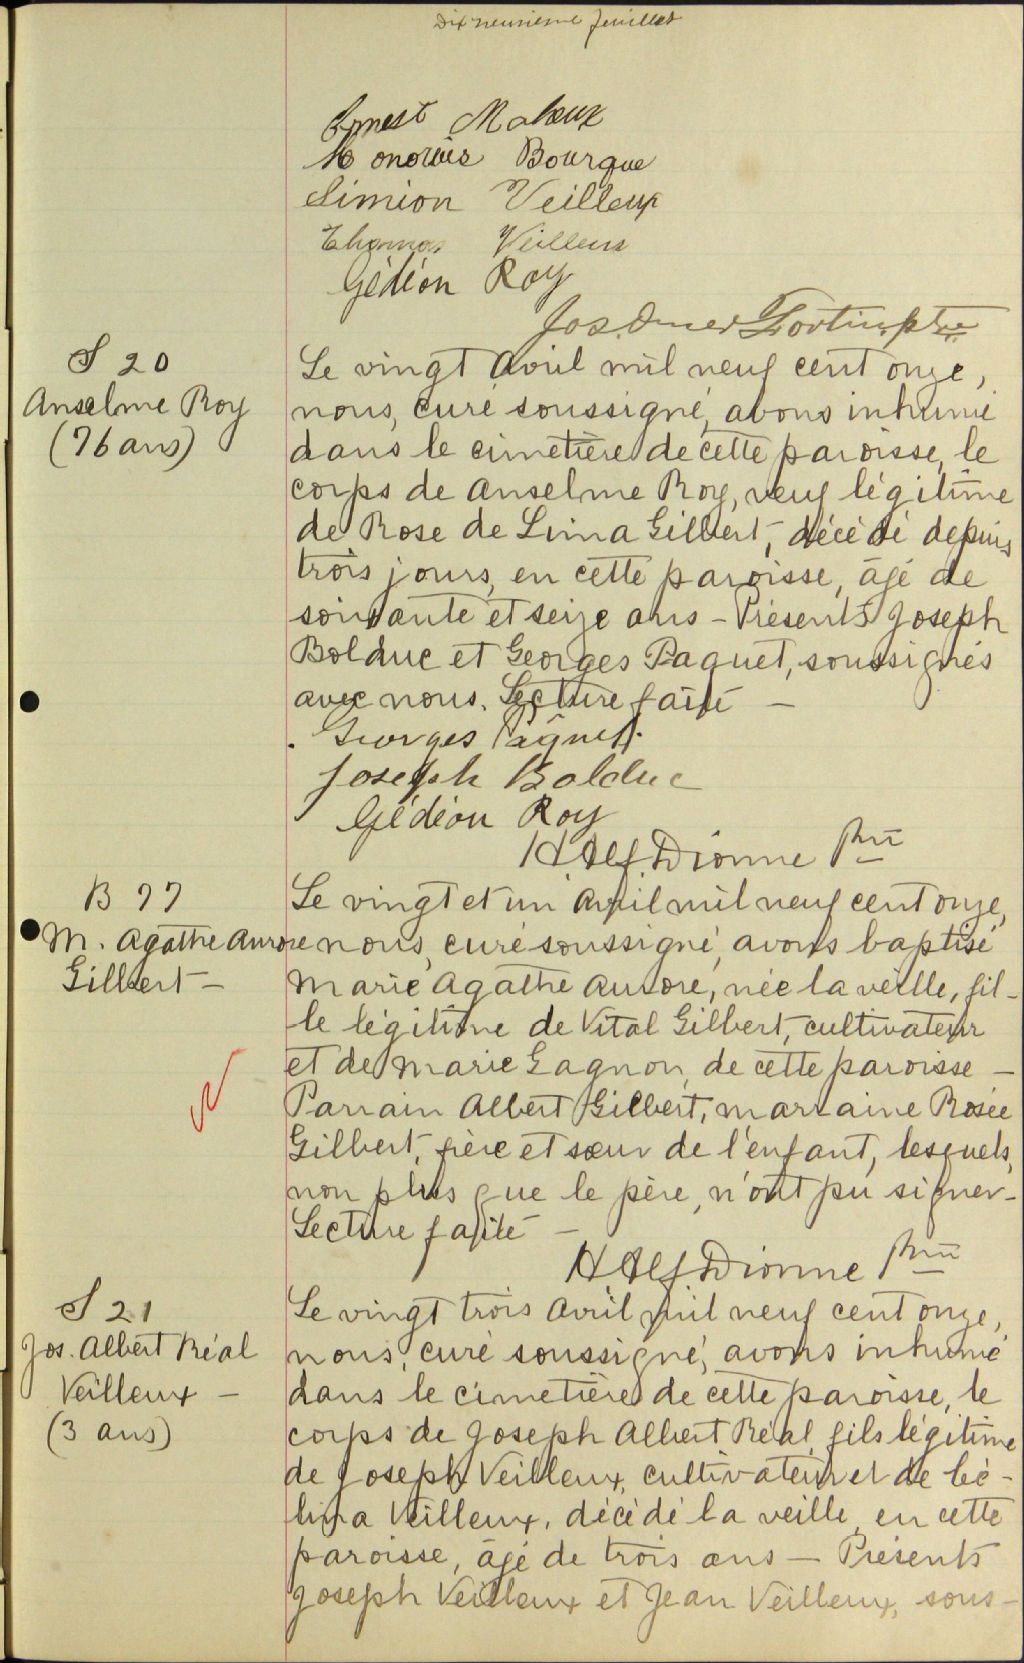 Dix neuvième feuillet
Ernest Maheux
Honorius Bourque
Siméon Veilleux
Thomas Veilleux
Gédéon Roy
Jos. Omer Fortin, ptre
S 20
Anselme Roy
(76 ans)
Le vingt avril mil neuf cent onze,
nous, curé soussigné, avons inhumé
dans le cimetière de cette paroisse, le
corps de Anselme Roy, veuf légitime
de Rose de Lima Gilbert, décédé depuis
trois jours, en cette paroisse, âgé de
soixante et seize ans - Présents Joseph
Bolduc et Georges Paquet, soussignés
avec nous. Lecture faite -
Georges Paquet.
Joseph Bolduc
Gédéon Roy
H. Alf. Dionne Ptre
B 77
M. Agathe Aurore
Gilbert -
Le vingt et un avril mil neuf cent onze,
nous, curé soussigné, avons baptisé
Marie Agathe Aurore, née la veille, fil-
le légitime de Vital Gilbert, cultivateur
et de Marie Gagnon, de cette paroisse -
Parrain Albert Gilbert, marraine Rosée
Gilbert, frère et sœur de l'enfant, lesquels,
non plus que le père, n'ont pu signer -
Lecture faite -
H Alf Dionne Ptre
S 21
Jos. Albert Réal
Veilleux -
(3 ans)
Le vingt trois avril mil neuf cent onze,
nous, curé soussigné, avons inhumé
dans le cimetière de cette paroisse, le
corps de Joseph Albert Réal, fils légitime
de Joseph Veilleux, cultivateur et de Cé-
lina Veilleux, décédé la veille, en cette
paroisse, âgé de trois ans - Présents
Joseph Veilleux et Jean Veilleux, sous-